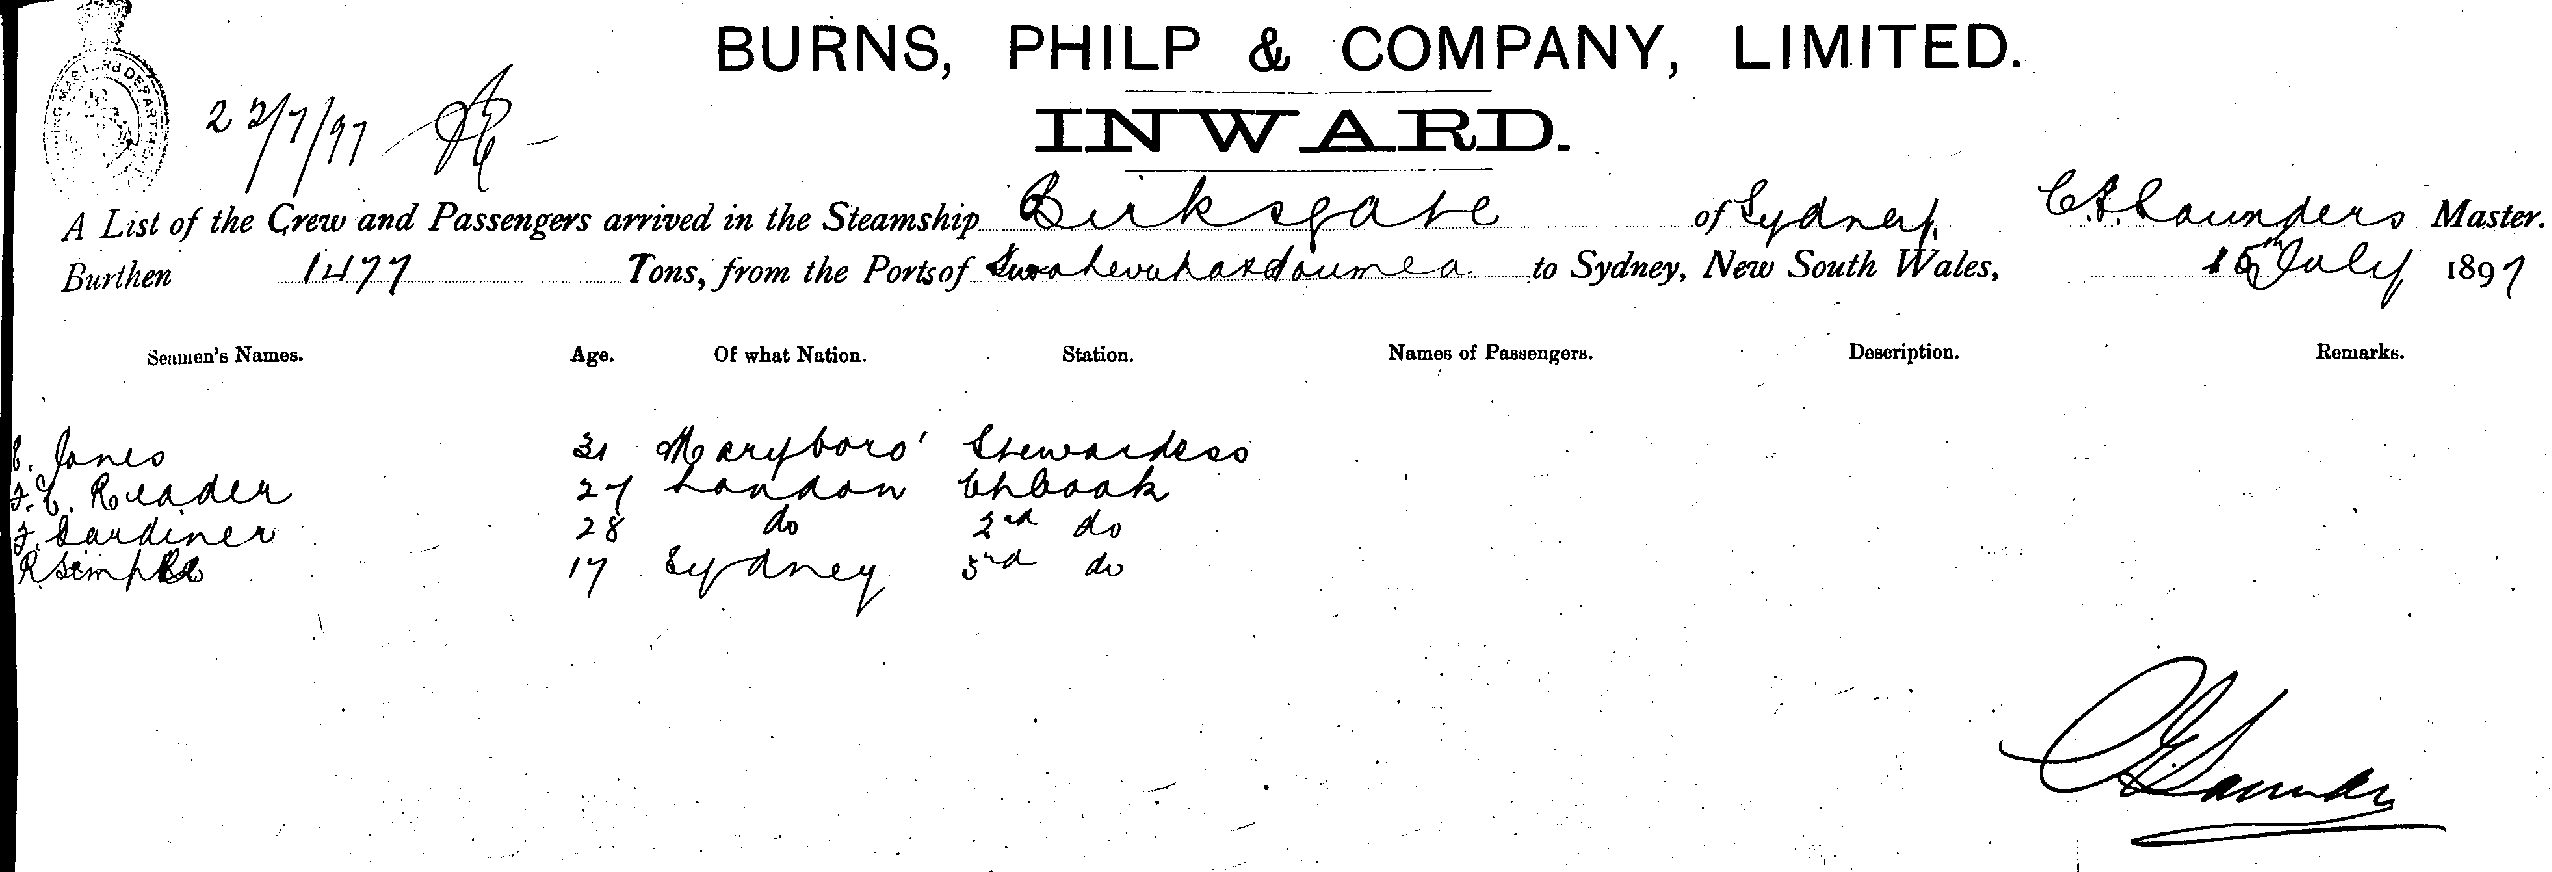 BURNS, PHILP & COMPANY, LIMITED.
22/7/97
INWARD.
A List of the Crew and Passengers arrived in the Steamship Birksgate of Sydney, C.S. Saunders Master.
Burthen 1477 Tons, from the Ports of Suva Levuka & Noumea to Sydney, New South Wales, July 1897
Seamen's Names. Age. Of what Nation. Station. Names of Passengers. Description. Remarks.
Jones 31 Maryboro' Stewardess
F.C. Reader 27 London Ch Cook
F. Gardiner 28 do 2nd do
R Simpson 17 Sydney 3rd do